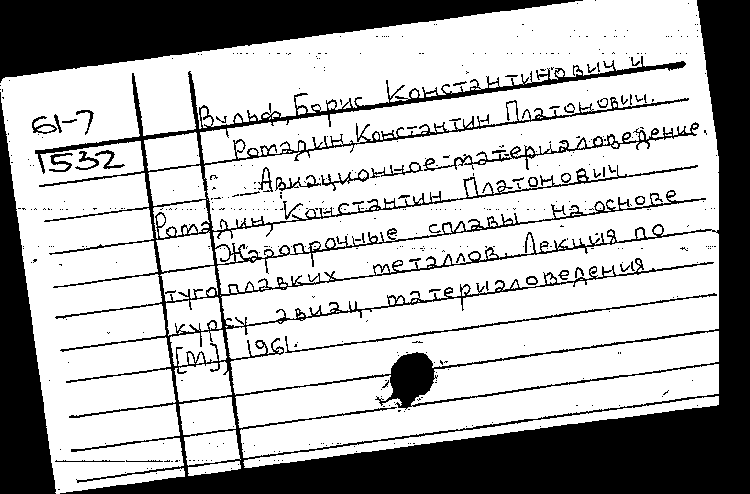 61-7
1532
Вульф, Борис Константинович и
Ромадин, Константин Платонович.
Авиационное материаловедение.
Ромадин, Константин Платонович
Жаропрочные сплавы на основе
тугоплавких металлов. Лекция по
курсу авиац. материаловедения.
[М.], 1961.